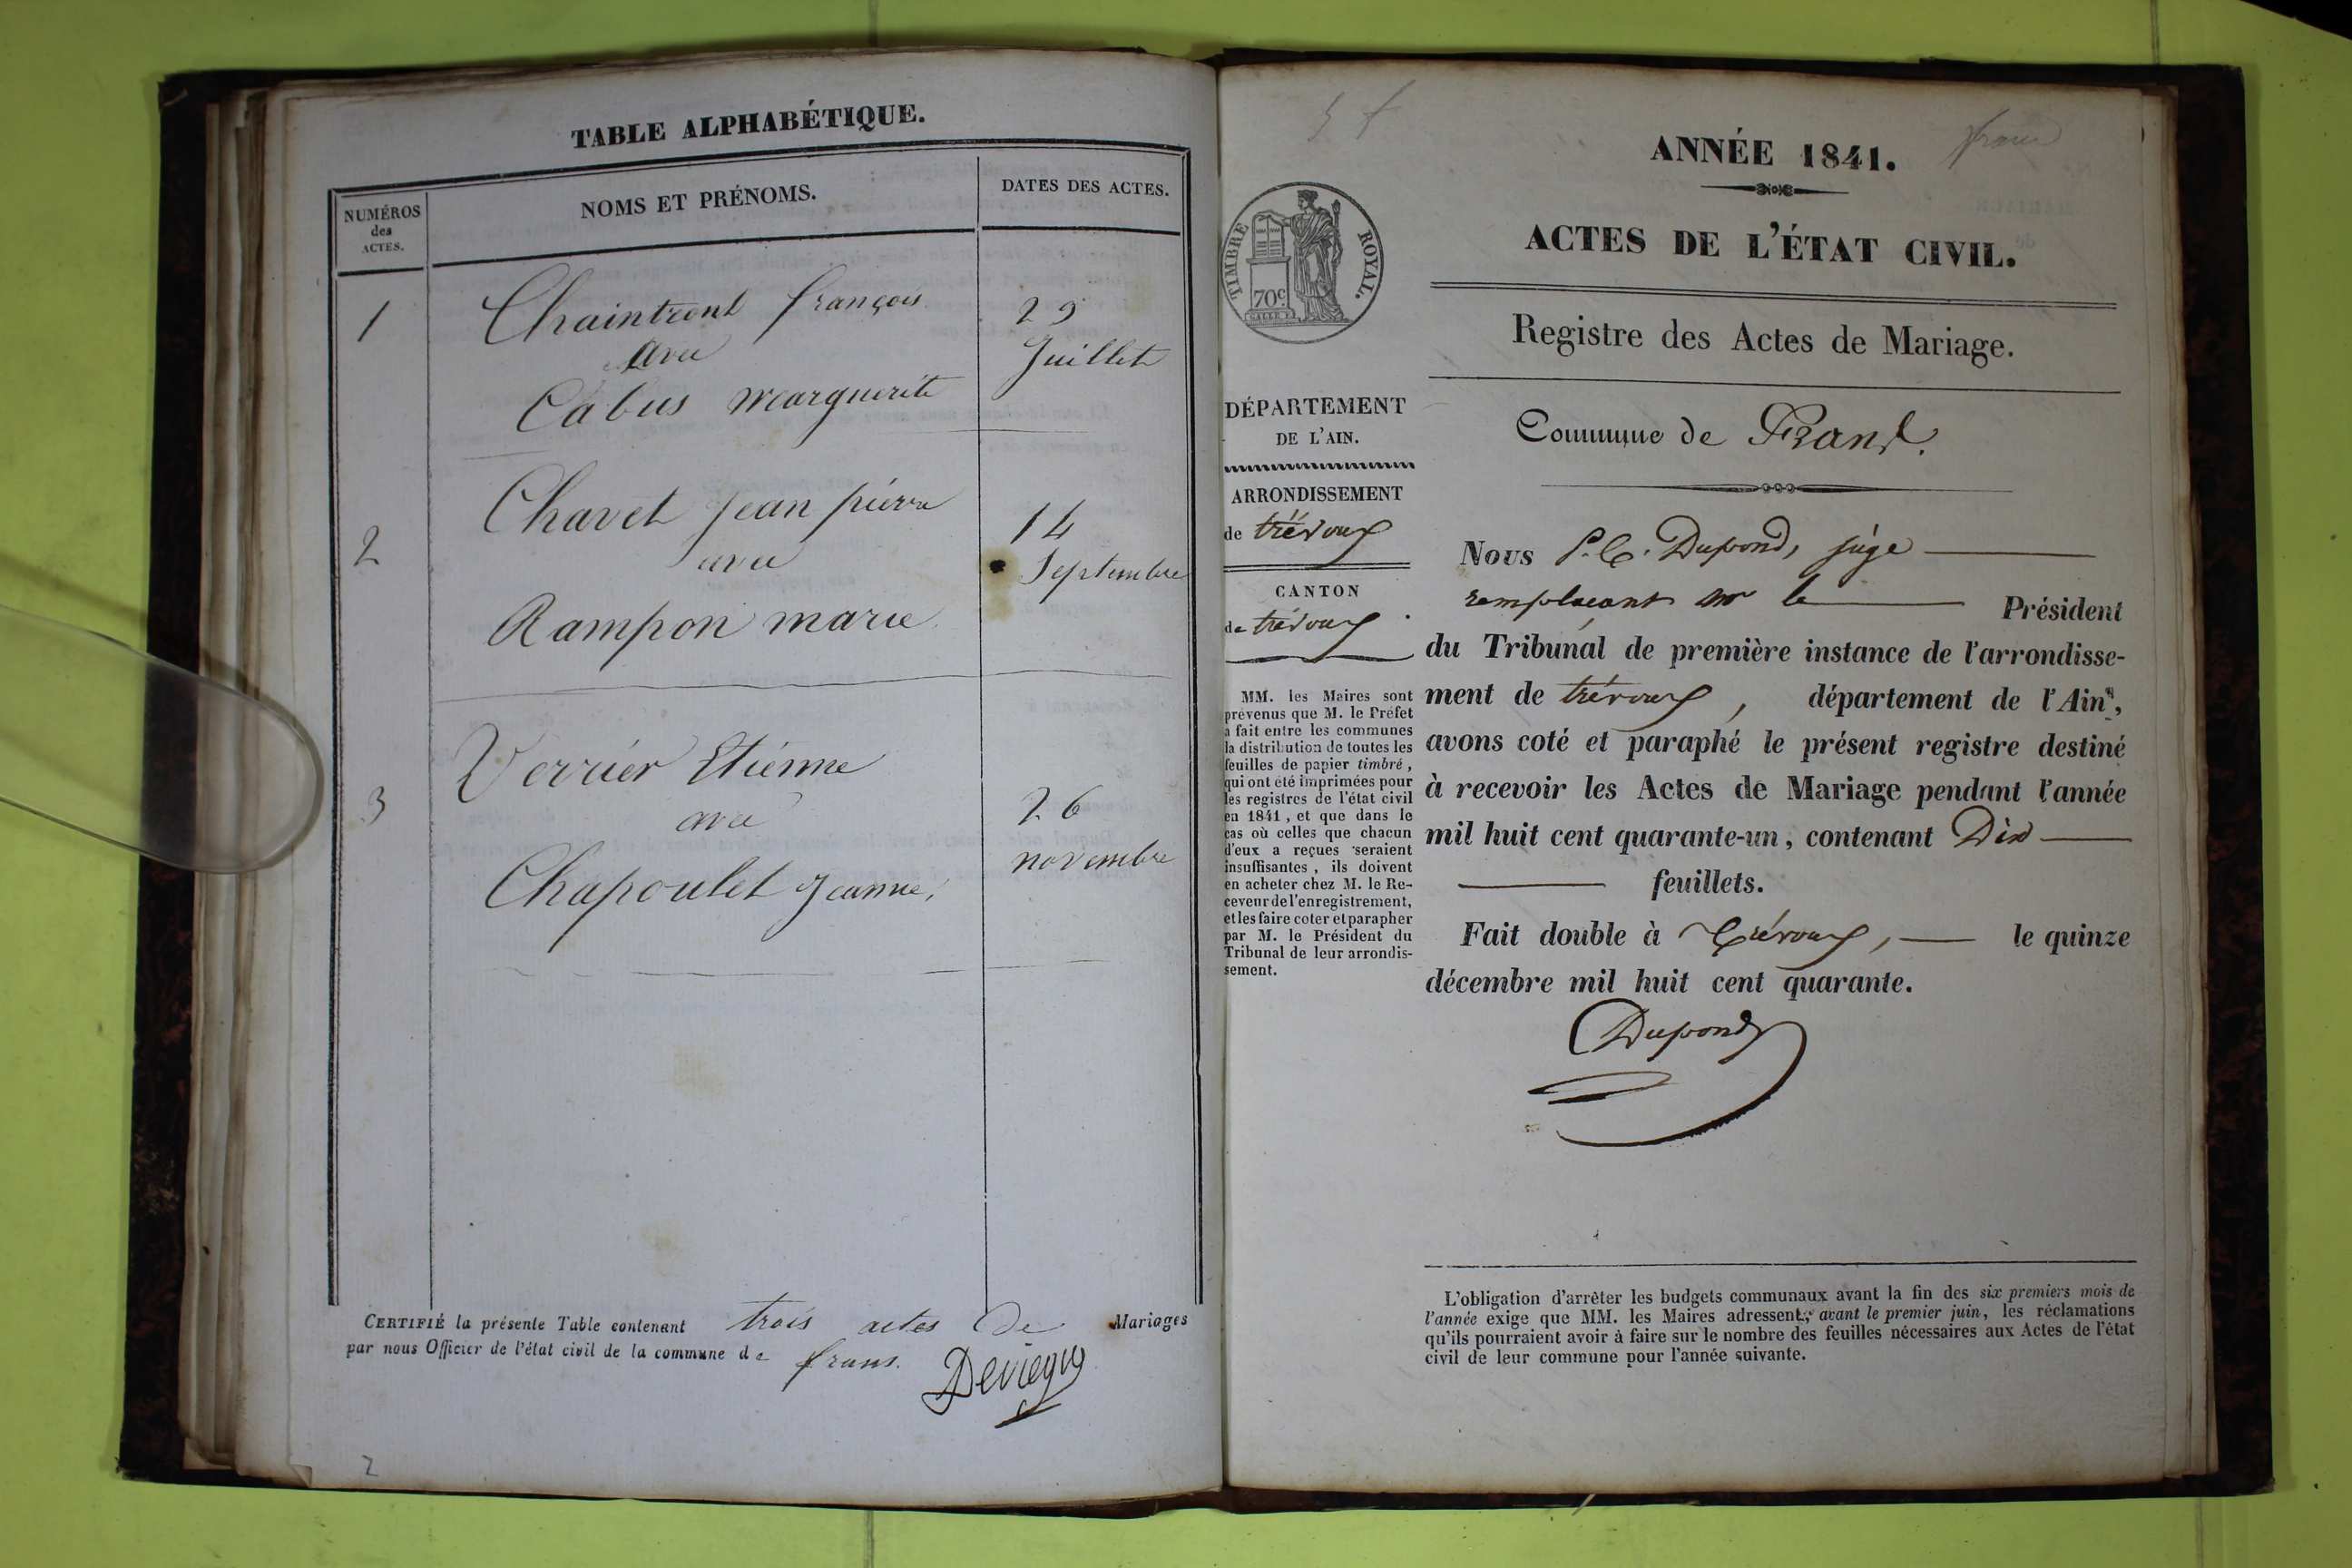 TABLE ALPHABÉTIQUE.
NUMÉROS
des
ACTES.
NOMS ET PRÉNOMS.
DATES DES ACTES.
1
Chaintront françois
avec
Cabus marguerite
29
Juillet
2
Chavet Jean pierre
avec
Rampon marie
14
Septembre
3
Verrier Etienne
avec
Chapoulet Jeanne
26
novembre
CERTIFIÉ la présente Table contenant trois actes de Mariages
par nous Officier de l'état civil de la commune de frans.
2
ANNÉE 1841.
ACTES DE L'ÉTAT CIVIL.
Registre des Actes de Mariage.
Commune de Frans.
TIMBRE ROYAL.
70c.
DÉPARTEMENT
DE L'AIN.
ARRONDISSEMENT
de trévoux
CANTON
de trévoux
MM. les Maires sont
prévenus que M. le Préfet
a fait entre les communes
la distribution de toutes les
feuilles de papier timbré,
qui ont été imprimées pour
les registres de l'état civil
en 1841, et que dans le
cas où celles que chacun
d'eux a reçues seraient
insuffisantes, ils doivent
en acheter chez M. le Re-
ceveur de l'enregistrement,
et les faire coter et parapher
par M. le Président du
Tribunal de leur arrondis-
sement.
Nous P. C. Dupond, juge
remplaçant mr le Président
du Tribunal de première instance de l'arrondisse-
ment de trévoux, département de l'Ain,
avons coté et paraphé le présent registre destiné
à recevoir les Actes de Mariage pendant l'année
mil huit cent quarante-un, contenant Dix
feuillets.
Fait double à Trévoux, le quinze
décembre mil huit cent quarante.
Dupond
L'obligation d'arrêter les budgets communaux avant la fin des six premiers mois de
l'année exige que MM. les Maires adressent, avant le premier juin, les réclamations
qu'ils pourraient avoir à faire sur le nombre des feuilles nécessaires aux Actes de l'état
civil de leur commune pour l'année suivante.